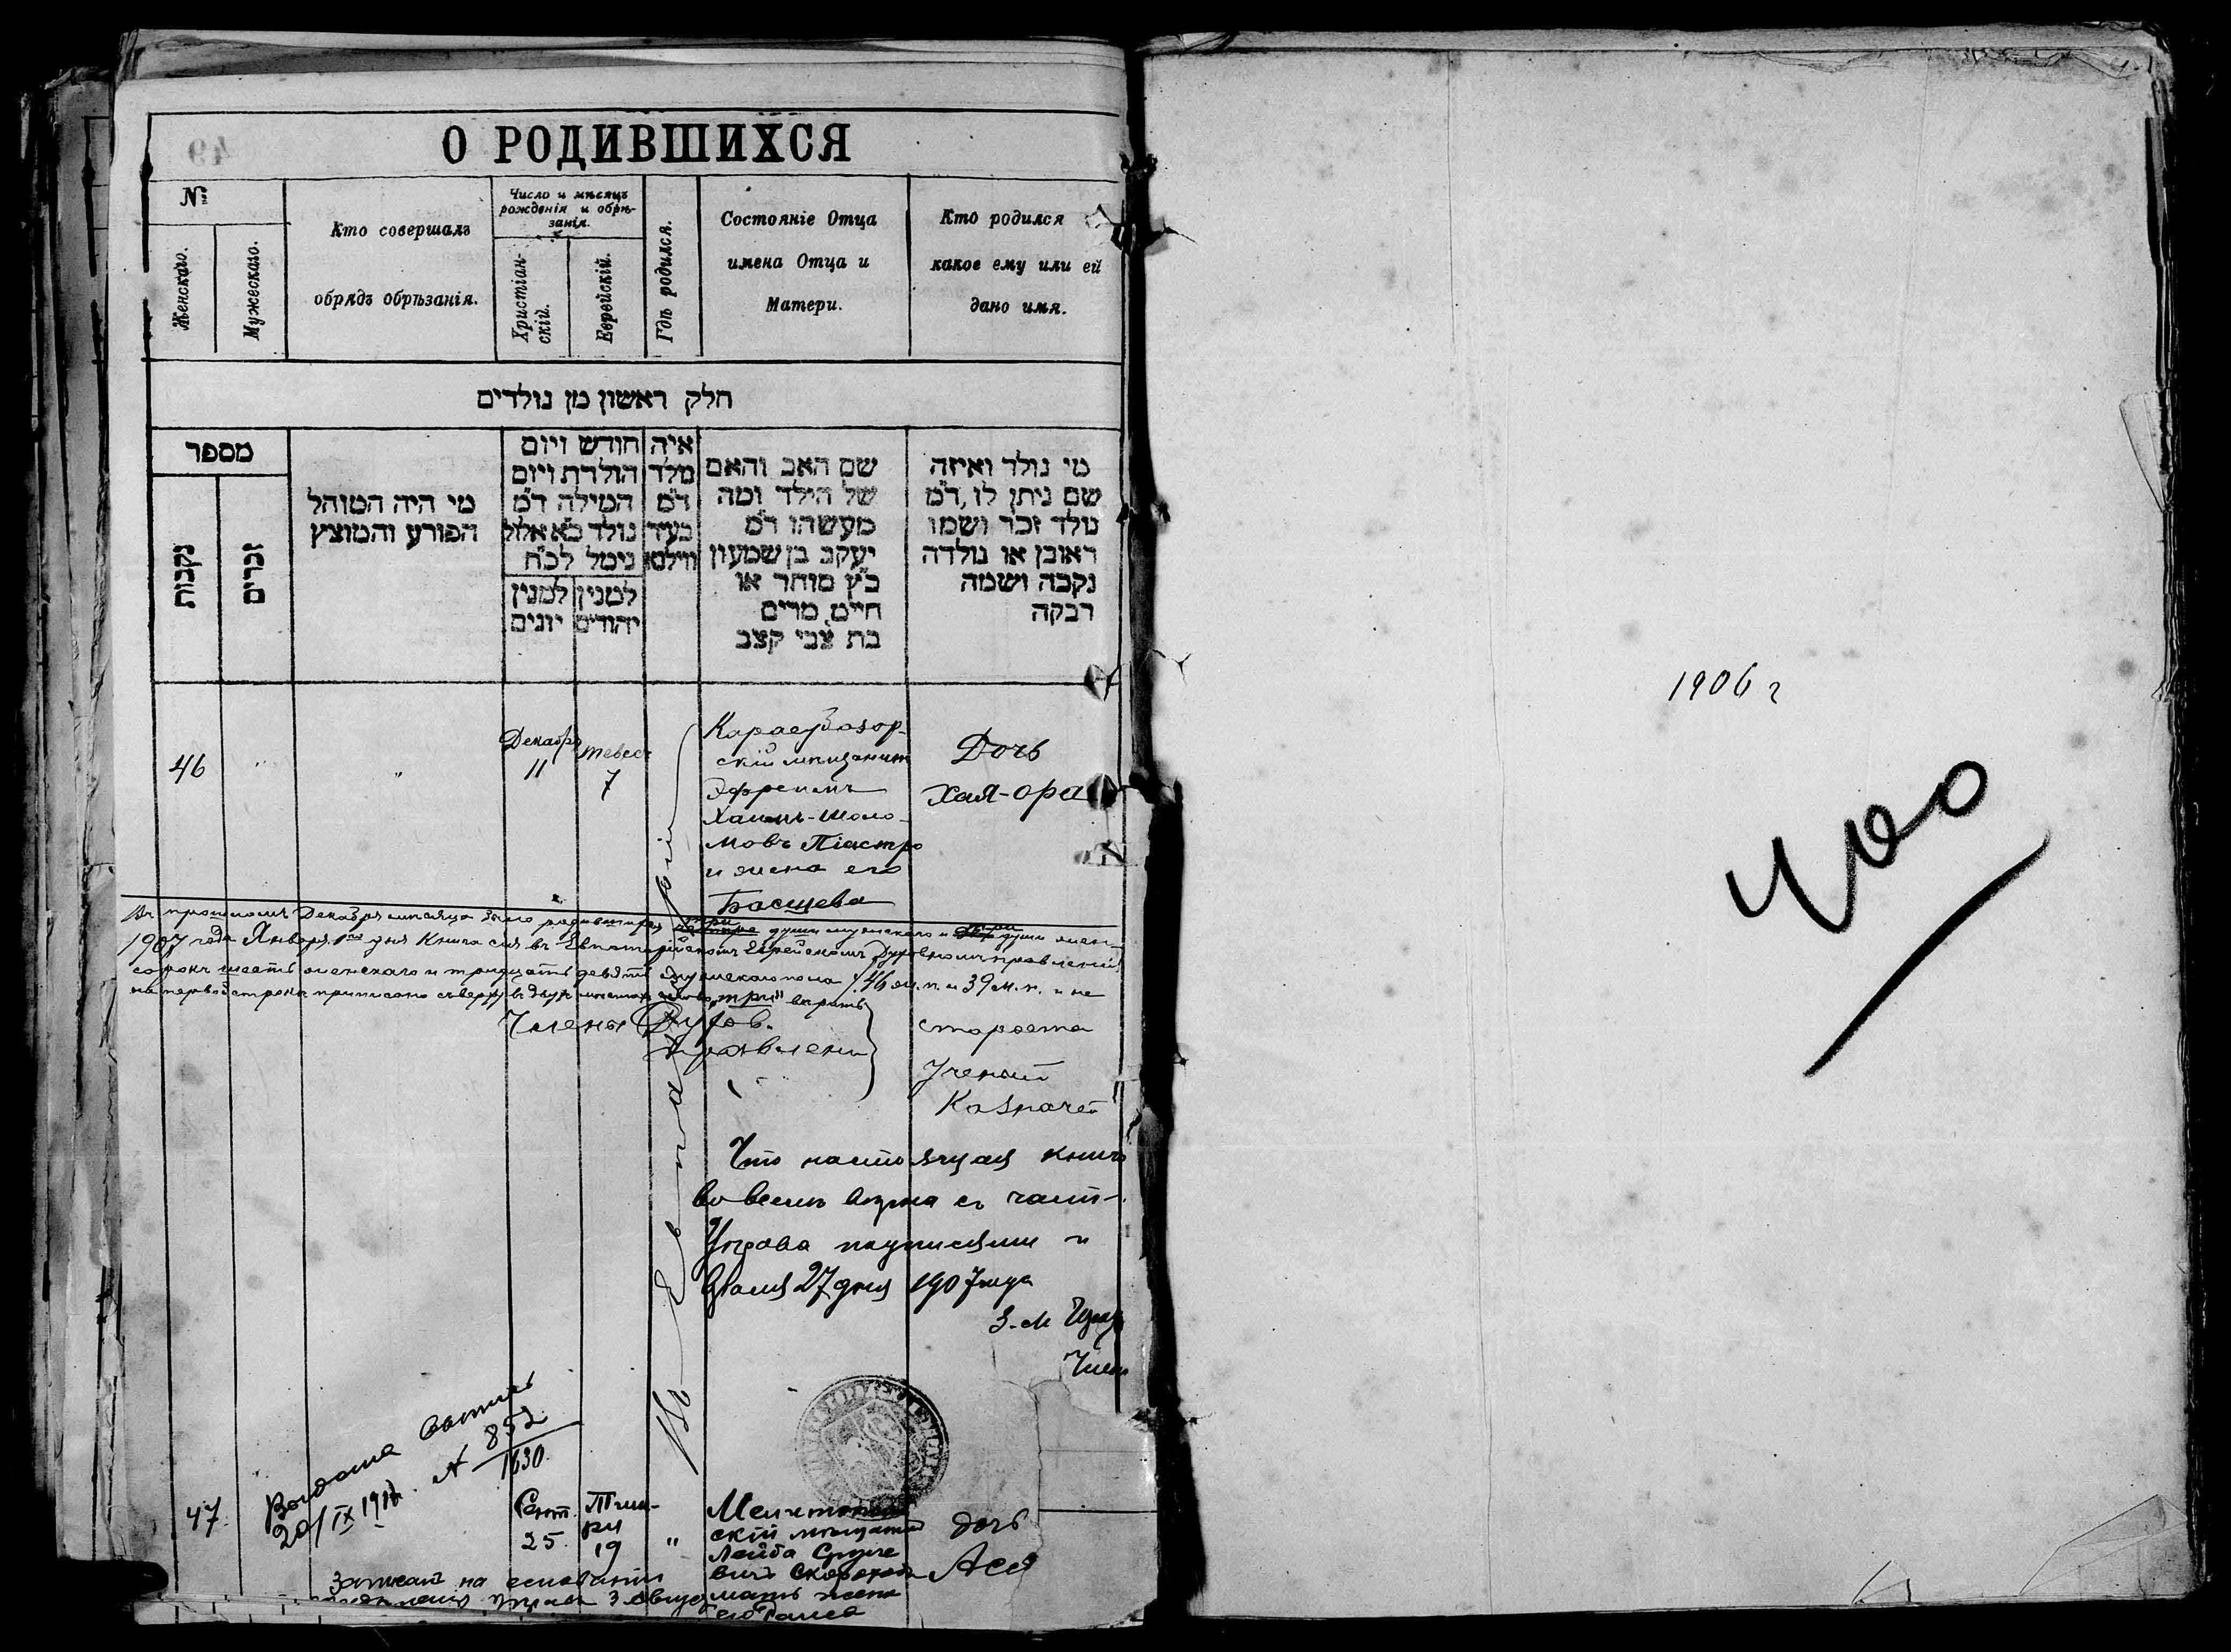 О РОДИВШИХСЯ
49
№
Женскаго.
Мужескаго.
Кто совершалъ
обрядъ обрѣзанія.
Число и мѣсяцъ
рожденія и обрѣ-
занія.
Христіан-
скій.
Еврейскій.
Гдѣ родился.
Состояніе Отца
имена Отца и
Матери.
Кто родился
какое ему или ей
дано имя.
חלק ראשון מן נולדים
מספר
נקבות
זכרים
מי היה המוהל
הפורע והמוצץ
חודש ויום
הולדת ויום
המילה ד״מ
נולד כ״א אלול
נימל לכ״ח
למנין יהודים
למנין יונים
איה
מלד
ד״מ
בעיר
ווילנא
שם האב והאם
של הילד ומה
מעשהו ד״מ
יעקב בן שמעון
כ״ץ סוחר או
חייט, מרים
בת צבי קצב
מי נולד ואיזה
שם ניתן לו, ד״מ
נולד זכר ושמו
ראובן או נולדה
נקבה ושמה
רבקה
46
"
"
Декабр
11
Тевес
7
Карасубазар-
скій мещанин
Эфреимъ
Хаимъ-Шоло-
мовъ Піастро
и жена его
Басшева
Дочь
Хая-ора
Въ прошломъ Декабрѣ мѣсяца было родившихся три души мужскаго и три души жен-
1907 года Января 1го дня Книга сія въ Евпаторійскомъ Еврейскомъ Духовномъ правленіи
сорокъ шесть женскаго и тридцать девять мужескаго пола /. 46 ж. п. и 39 м. п. и не
на первой строкѣ приписано сверху въ двухъ мѣстахъ слово „три" вѣрить
Члены Духов.
Правлени
староста
Ученый
Казначей
Что настоящая книга
во всем верна с част-
Управа подписями и
27 дня 1907 года
Члены
Выдана
20/IX 191
№ 852
1630.
47.
Сент.
25.
Тиш-
ри
19
"
Мелитополь
скій мещанин
Лейба Сруле
вичъ Скороход
мать жена
его
дочь
Ася
Записан на основании
Управы 3 Август
1906 г